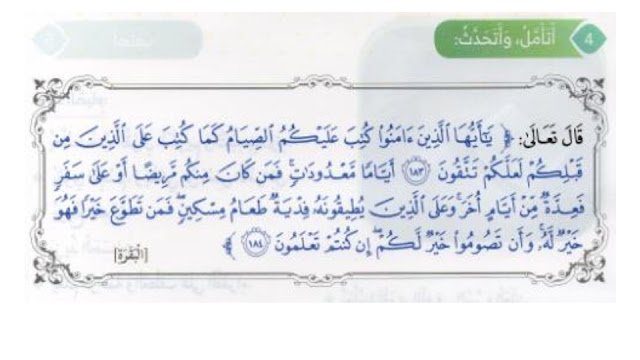 4 أَتَأَمَّلُ، وَأَتَحَدَّثُ:
قَالَ تَعَالَى: ﴿ يَٰٓأَيُّهَا ٱلَّذِينَ ءَامَنُوا۟ كُتِبَ عَلَيْكُمُ ٱلصِّيَامُ كَمَا كُتِبَ عَلَى ٱلَّذِينَ مِن
قَبْلِكُمْ لَعَلَّكُمْ تَتَّقُونَ ١٨٣ أَيَّامًا مَّعْدُودَٰتٍ ۚ فَمَن كَانَ مِنكُم مَّرِيضًا أَوْ عَلَىٰ سَفَرٍ
فَعِدَّةٌ مِّنْ أَيَّامٍ أُخَرَ ۚ وَعَلَى ٱلَّذِينَ يُطِيقُونَهُۥ فِدْيَةٌ طَعَامُ مِسْكِينٍ ۖ فَمَن تَطَوَّعَ خَيْرًا فَهُوَ
خَيْرٌ لَّهُۥ ۚ وَأَن تَصُومُوا۟ خَيْرٌ لَّكُمْ ۖ إِن كُنتُمْ تَعْلَمُونَ ١٨٤ ﴾ [الْبَقَرَة]